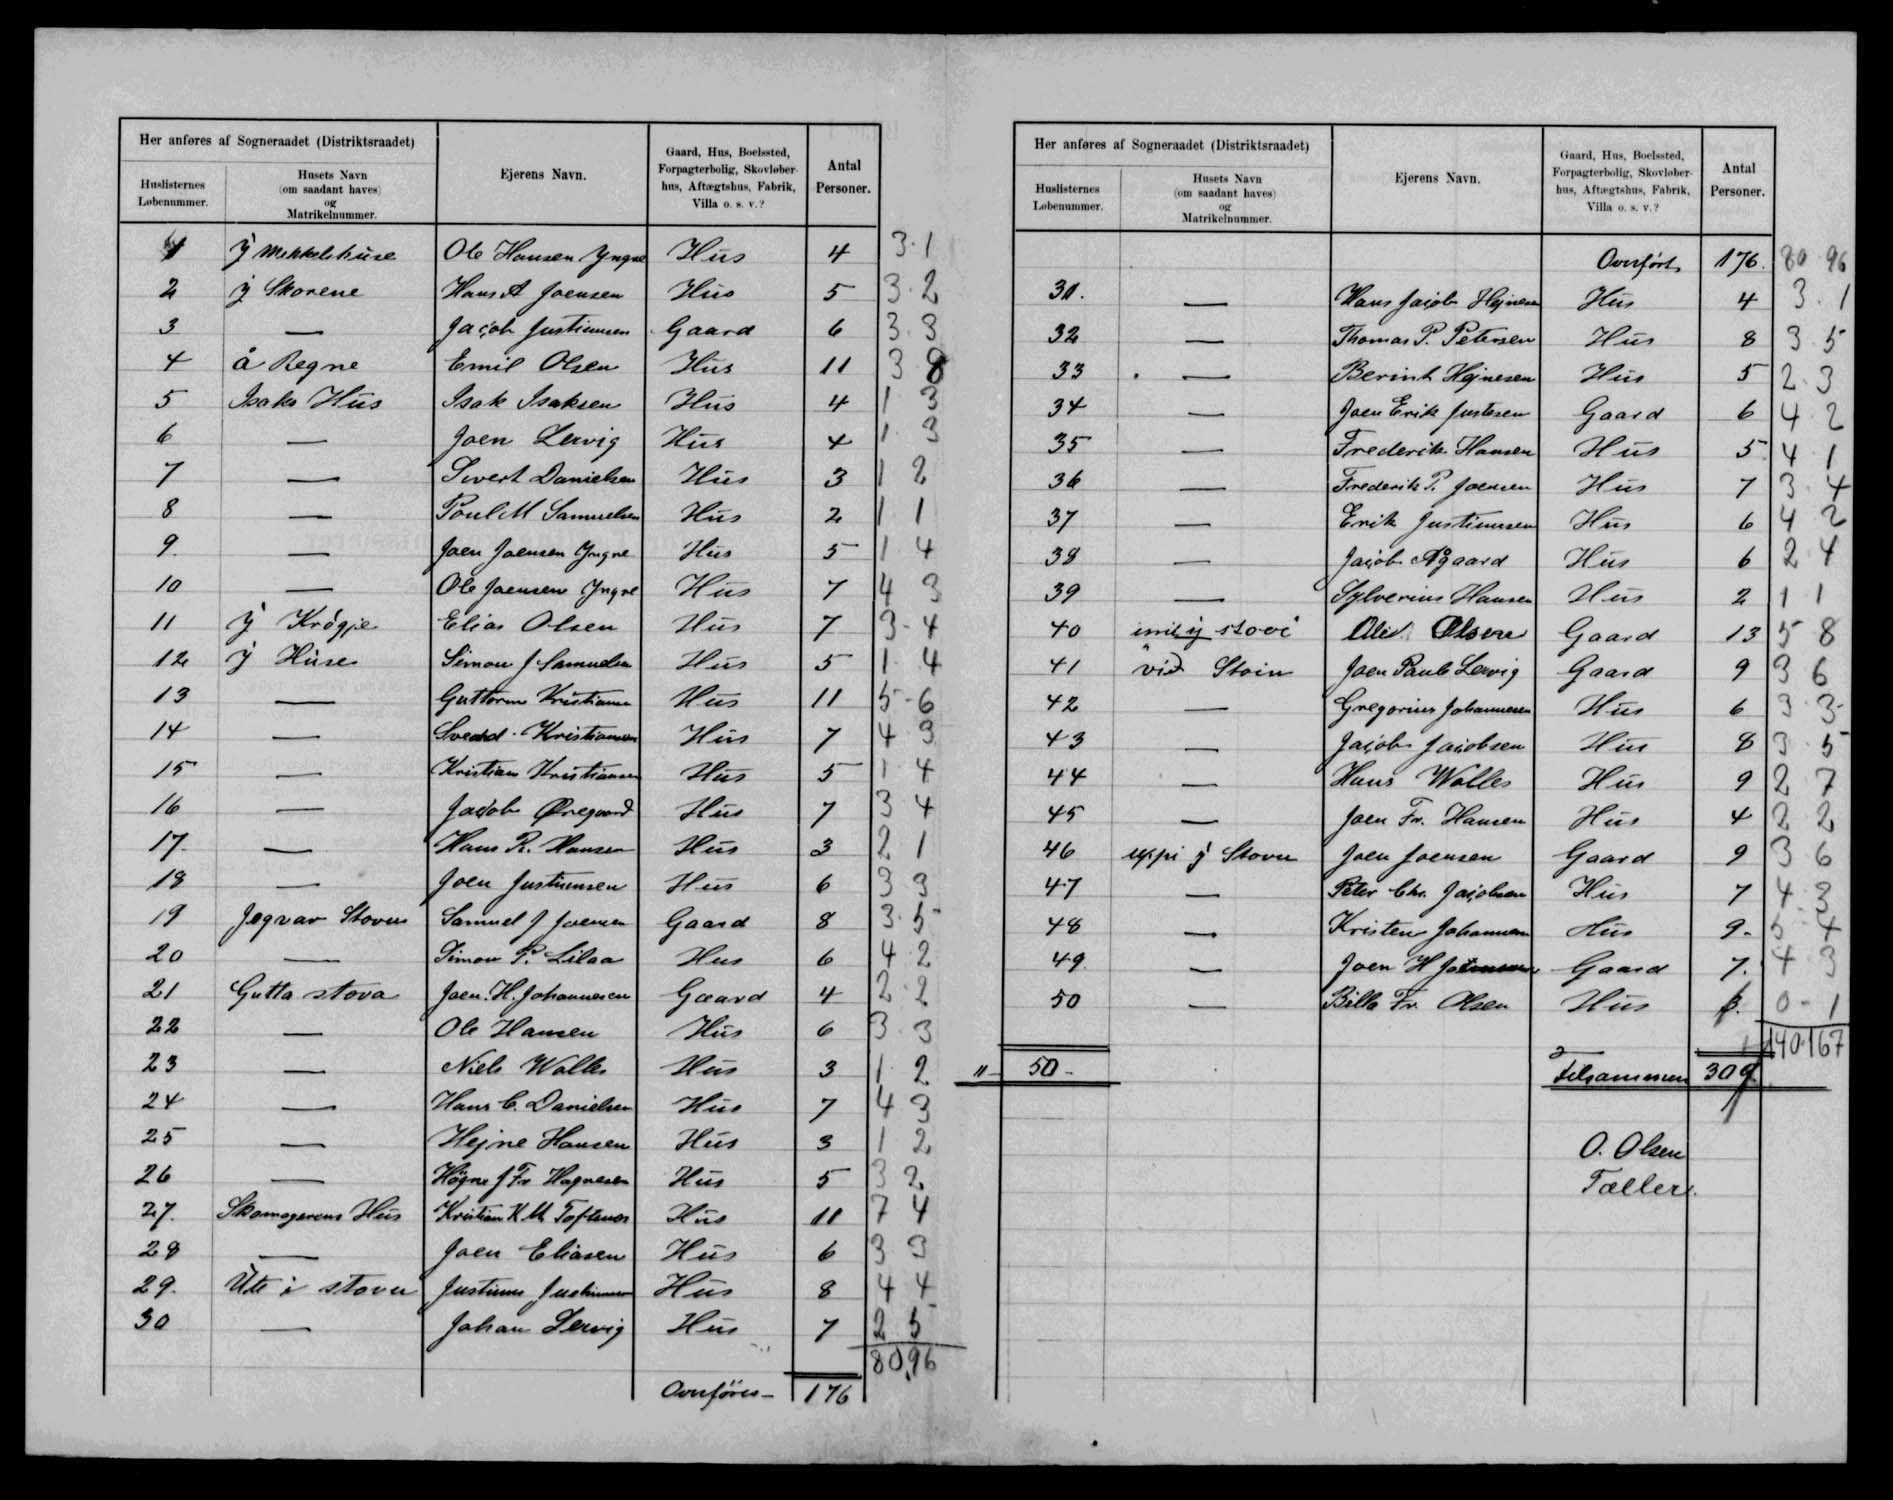 Her anføres af Sogneraadet (Distriktsraadet)
Huslisternes Løbenummer.
Husets Navn (om saadant haves) og Matrikelnummer.
Ejerens Navn.
Gaard, Hus, Boelssted, Forpagterbolig, Skovløberhus, Aftægtshus, Fabrik, Villa o. s. v.?
Antal Personer.
1 ÿ Mikkelshuse Ole Hansen Yngne Hus 4 3·1
2 ÿ Skorene Hans A Joensen Hus 5 3·2
3 — Jacob Justinusen Gaard 6 3·3
4 å Regne Emil Olsen Hus 11 3 8
5 Isaks Hus Isak Isaksen Hus 4 1 3
6 — Joen Lervig Hus 4 1 3
7 — Sivert Danielsen Hus 3 1 2
8 — Poul M Samuelsen Hus 2 1 1
9 — Joen Joensen Yngne Hus 5 1 4
10 — Ole Joensen Yngne Hus 7 4 3
11 ÿ Krógje Elias Olsen Hus 7 3-4
12 ÿ Húse Simon J. Samuelsen Hus 5 1 4
13 — Guttorm Kristiansen Hus 11 5-6
14 — Kristiansen Hus 7 4 3
15 — Kristian Kristiansen Hus 5 1 4
16 — Jacob Øregaard Hus 7 3 4
17 — Hans R. Hansen Hus 3 2 1
18 — Joen Justinusen Hus 6 3 3
19 Jegvar Stovu Samuel J Joensen Gaard 8 3·5
20 — Simon P. Lilaa Hus 6 4 2
21 Gutta stova Joen. H. Johannesen Gaard 4 2·2
22 — Ole Hansen Hus 6 3·3
23 — Niels Walles Hus 3 1 2
24 — Hans C. Danielsen Hus 7 4 3
25 — Hejne Hansen Hus 3 1 2
26 — Högne J Fr Hognesen Hus 5 3 2
27. Skomagerens Hus Kristian K M Toftenes Hus 11 7 4
28 — Joen Eliasen Hus 6 3 3
29. Úte i stovu Justinus Justinusen Hus 8 4 4
30 — Johan Lervig Hus 7 2 5
80,96
Overföres — 176
Her anføres af Sogneraadet (Distriktsraadet)
Huslisternes Løbenummer.
Husets Navn (om saadant haves) og Matrikelnummer.
Ejerens Navn.
Gaard, Hus, Boelssted, Forpagterbolig, Skovløberhus, Aftægtshus, Fabrik, Villa o. s. v.?
Antal Personer.
Overført 176. 80 96
31. — Hans Jacob Hejnesen Hus 4 3·1
32 — Thomas P. Petersen Hus 8 3·5
33 — Berint Hejnesen Hus 5 2·3
34 — Joen Erik Justesen Gaard 6 4 2
35 — Frederik Hansen Hus 5 4 1
36 — Frederik P. Joensen Hus 7 3·4
37 — Erik Justinusen Hus 6 4 2
38 — Jacob Aÿgaard Hus 6 2·4
39 — Sylverius Hansen Hus 2 1 1
40 ÿ stovi Olsen Gaard 13 5 8
41 við Stoin Joen Paule Lervig Gaard 9 3 6
42 — Gregorius Johannesen Hus 6 3·3
43 — Jacob Jacobsen Hus 8 3·5
44 — Hans Walles Hus 9 2 7
45 — Joen Fr. Hansen Hus 4 2 2
46 uppi ÿ Stovu Joen Joensen Gaard 9 3 6
47 — Peter Chr. Jacobsen Hus 7 4·3
48 — Kristen Johannesen Hus 9. 5 4
49. — Joen H Gaard 7. 4 3
50 — Billa Fr. Olsen Hus 0-1
140·167
50 — Tilsammen 309
O. Olsen
Tæller.